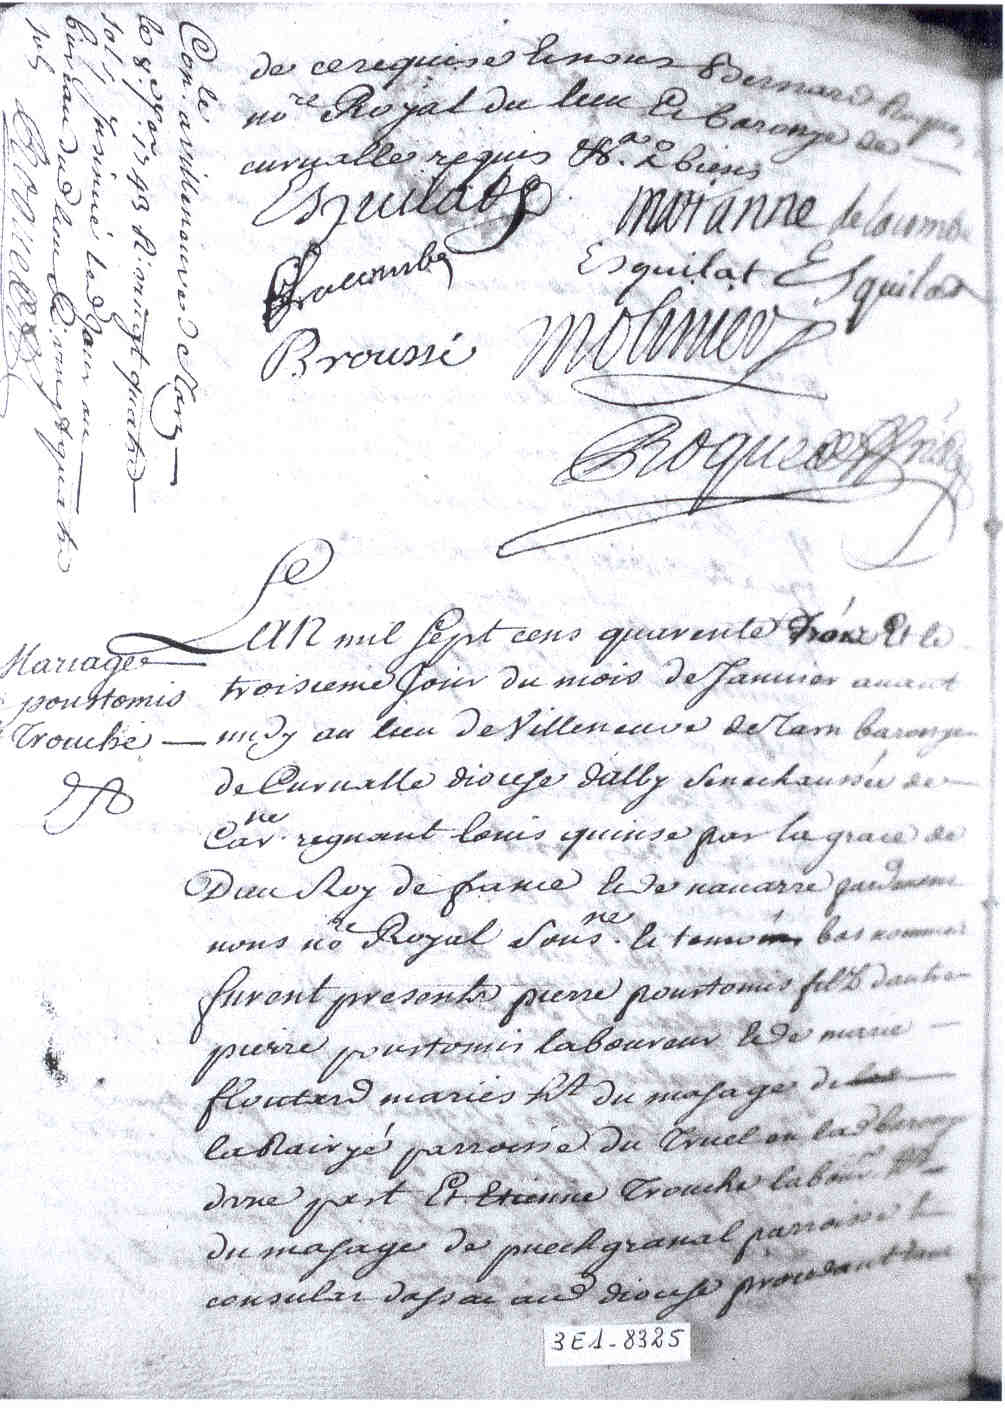 de ce requise et nous Bernard Roques
nore Royal du lieu et baronye de
curvalle requis
Esquilat
marianne delacombe
Lacombe
Esquilat Esquilat
Broussé
Molinier
Roques
Con.lé a villeneuve de Tarn
le 8. 1743 R. vingt quatre
sols Insinué led. Jour au
bureau dud. lieu R. vingt quatre
sols
Mariage
poustomis
Trouche
Lan mil sept cens quarente Trois Et le
troisieme Jour du mois de Janvier avant
midy au lieu de Villeneuve de Tarn baronye
de Curvalle dioceze dalby Senechaussée de
Carne regnant louis quinse par la grace de
Dieu Roy de france et de navarre pardevant
nous nore Royal Sousne et temoins bas nommes
furent presents pierre poustomis fils dautre
pierre poustomis laboureur et de marie
floutard mariés ht du masage de
la Rairyé parroisse du Truel en lad baronye
dune part Et Etienne Trouche labour ht
du masage de puechgranal parroisse et
consulat dassac aud dioceze
3E1-8325